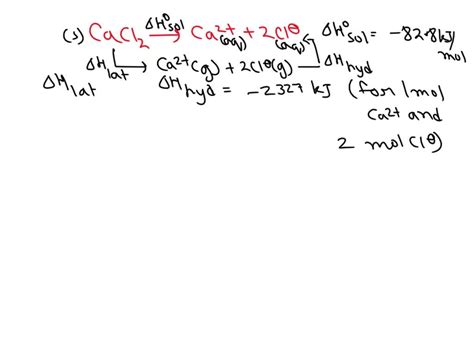 (s) CaCl2 ΔH°sol → Ca2+ (aq) + 2Cl⊖ (aq) ΔH°sol = -82.8 kJ/mol
ΔHlat → Ca2+(g) + 2Cl⊖(g) ΔHhyd
ΔHlat ΔHhyd = -2327 kJ (for 1 mol
Ca2+ and
2 mol Cl⊖)